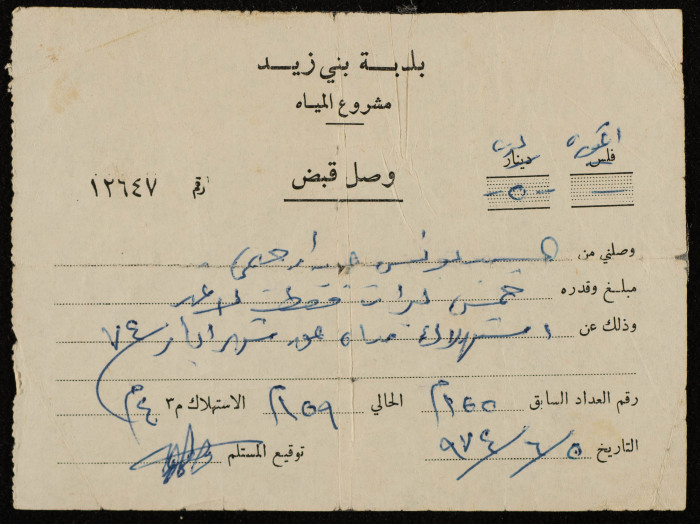 بلدية بني زيد
مشروع المياه
وصل قبض
رقم ١٢٦٤٧
ليرة
فلس دينار
— ٥
وصلني من يونس
مبلغ وقدره خمس ليرات فقط لا غير
وذلك عن استهلاك مياه عن شهر أيار ٧٤
رقم العداد السابق ١٥٥م الحالي ١٥٩م الاستهلاك م٣ ٤م
التاريخ ٥/٦/٩٧٤ توقيع المستلم